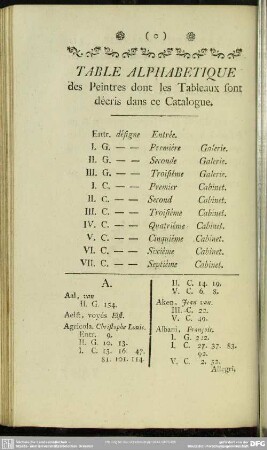 ( o )
TABLE ALPHABETIQUE
des Peintres dont les Tableaux sont
décris dans ce Catalogue.
Entr. désigne Entrée.
I. G. — — Première Galerie.
II. G. — — Seconde Galerie.
III. G. — — Troisième Galerie.
I. C. — — Premier Cabinet.
II. C. — — Second Cabinet.
III. C. — — Troisième Cabinet.
IV. C. — — Quatrième Cabinet.
V. C. — — Cinquième Cabinet.
VI. C. — — Sixième Cabinet.
VII. C. — — Septième Cabinet.
A.
Aal, van
II. G. 154.
Aelst, voyés Elst.
Agricola. Christophe Louis.
Entr. 9.
II. G. 10. 13.
I. C. 13. 16. 47.
81. 101. 114.
II. C. 14. 19.
V. C. 6. 8.
Aken, Jean van.
III. C. 20.
V. C. 49.
Albani, François,
I. G. 312.
I. C. 25. 37. 83.
92.
V. C. 2. 52.
Allegri,